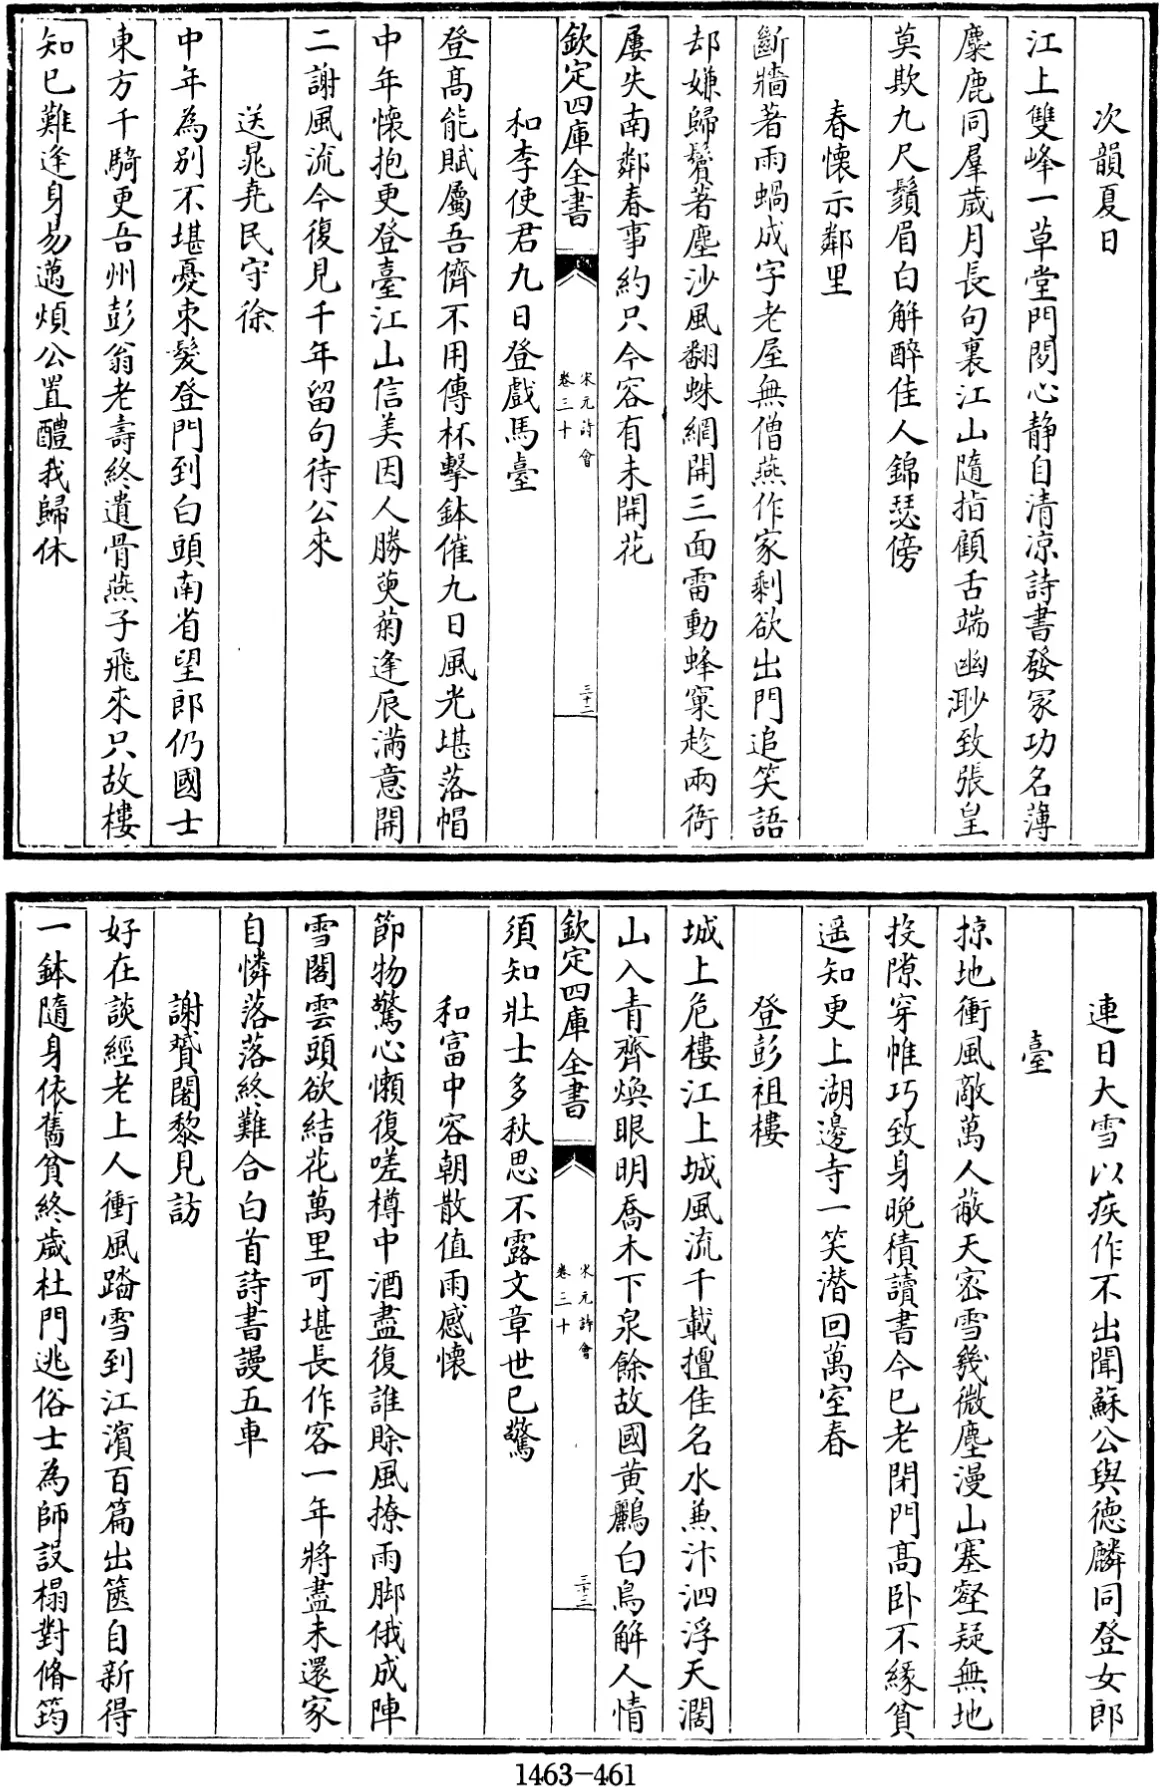 次韻夏日
江上雙峰一草堂門閑心靜自清凉詩書發冢功名薄
麋鹿同羣歲月長句裏江山隨指顧舌端幽渺致張皇
莫欺九尺鬚眉白解醉佳人錦瑟傍
春懷示鄰里
斷牆著雨蝸成字老屋無僧燕作家剩欲出門追笑語
却嫌歸鬢著塵沙風翻蛛網開三面雷動蜂窠趁兩衙
屢失南鄰春事約只今容有未開花
欽定四庫全書
宋元詩會
卷三十
三十二
和李使君九日登戲馬臺
登髙能賦屬吾儕不用傳杯擊鉢催九日風光堪落帽
中年懷抱更登臺江山信美因人勝萸菊逢辰滿意開
二謝風流今復見千年留句待公來
送晁堯民守徐
中年為别不堪憂束髮登門到白頭南省望郎仍國士
東方千騎更吾州彭翁老壽終遺骨燕子飛來只故樓
知已難逢身易邁煩公置醴我歸休
連日大雪以疾作不出聞蘇公與德麟同登女郎
臺
掠地衝風敵萬人蔽天密雪幾微塵漫山塞壑疑無地
投隙穿帷巧致身晚積讀書今已老閉門髙卧不緣貧
遥知更上湖邊寺一笑潜回萬室春
登彭祖樓
城上危樓江上城風流千載擅佳名水兼汴泗浮天濶
山入青齊煥眼明喬木下泉餘故國黄鸝白鳥解人情
須知壯士多秋思不露文章世已驚
欽定四庫全書
宋元詩會
卷三十
三十三
和富中容朝散值雨感懷
節物驚心懶復嗟樽中酒盡復誰賒風撩雨脚俄成陣
雪閣雲頭欲結花萬里可堪長作客一年將盡未還家
自憐落落終難合白首詩書謾五車
謝贇闍黎見訪
好在談經老上人衝風踏雪到江濱百篇出篋自新得
一鉢隨身依舊貧終歳杜門逃俗士為師設榻對脩筠
1463-461